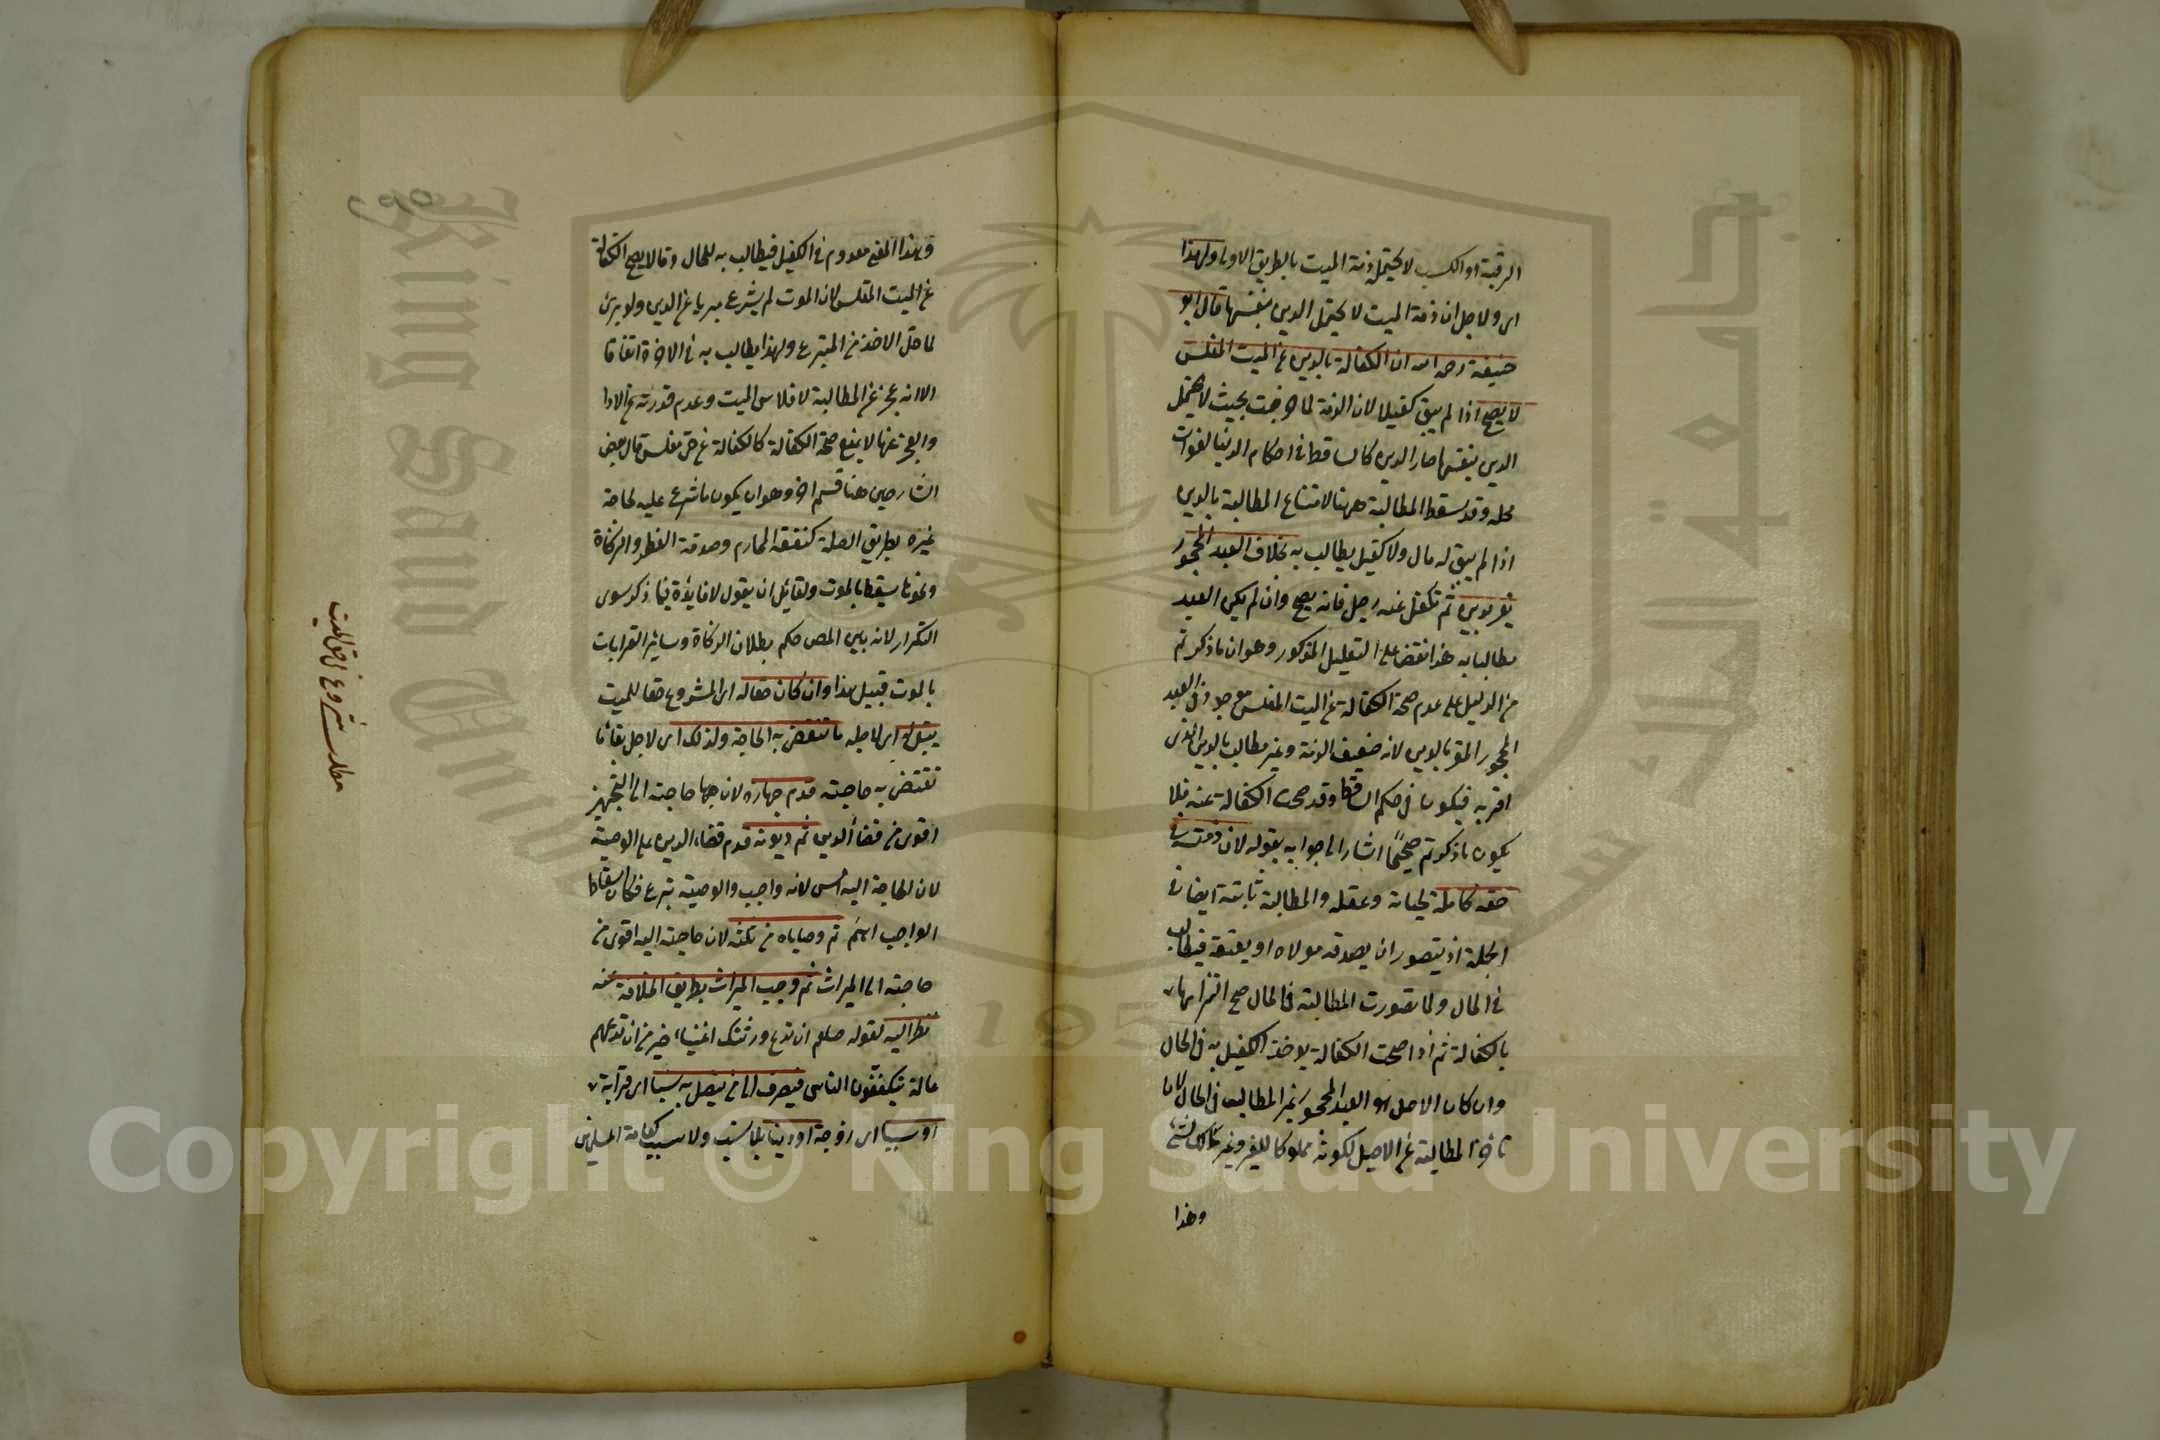 الرقبة او الكسب لا يحتمل ذمة الميت بالطريق الاولى ولهذا
اى ولاجل ان ذمة الميت لا يحتمل الدين بنفسها قال ابو
حنيفة رحمه الله ان الكفالة بالدين عن الميت المفلس
لا يصح اذا لم يبق كفيلا لان الذمة لما خربت بحيث لا يحتمل
الدين بنفسها صار الدين كالساقط فى احكام الدنيا لفوات
محله وقد سقط المطالبة ههنا لامتناع المطالبة بالدين
اذا لم يبق له مال ولا كفيل يطالب به بخلاف العبد المحجور
يقر بدين ثم تكفل عنه رجل فانه يصح وان لم يكن العبد
مطالبا به هذا نقض على التعليل المذكور وهو ان ما ذكرتم
من الدليل على عدم صحة الكفالة عن الميت المفلس موجود فى العبد
المحجور المقر بالدين لانه ضعيف الذمة وغير مطالب بالدين الذى
اقر به فيكون فى حكم الساقط وقد صحت الكفالة عنه فلا
يكون ما ذكرتم صحيحًا اشار الى جوابه بقوله لان ذمته فى
حقه كاملة لحياته وعقله والمطالبة ثابتة ايضا فى
الجملة اذ يتصور ان يصدقه مولاه او يعتقه فيطالب
فى الحال ولما تصورت المطالبة فى الحال صح التزامها
بالكفالة ثم اذا صحت الكفالة يؤخذ الكفيل به فى الحال
وان كان الاصل هو العبد المحجور غير المطالب فى الحال لان
تاخر المطالبة عن الاصيل لكونه مملوكا للغير وغير مالك لشئ
وهذا
وهذا المعنى معدوم فى الكفيل فيطالب به للحال وقالا يصح الكفالة
عن الميت المفلس لان الموت لم يشرع مبرئا عن الدين ولو برئ
لما حل الاخذ من المتبرع ولهذا يطالب به فى الاخرة اتفاقا
الا انه عجز عن المطالبة لافلاس الميت وعدم قدرته على الادا
والعجز عنها لا يمنع صحة الكفالة كالكفالة عن حى مفلس قال بعض
الشارحين هنا قسم اخر وهو ان يكون ما شرع عليه لحاجة
غيره بطريق الصلة كنفقة المحارم وصدقة الفطر والزكاة
ونحوها يسقط بالموت ولقائل ان يقول لا فايدة فيما ذكر سوى
التكرار لانه بين المص حكم بطلان الزكاة وسائر القرابات
بالموت قبيل هذا وان كان حقا له اى المشروع حقا للميت
يبقى له اى لاجله ما تنقضى به الحاجة ولذلك اى لاجل بقاء ما
تنقضى به حاجته قدم جهازه لان حاجته الى التجهيز
اقوى من قضاء الدين ثم ديونه قدم قضاء الدين على الوصية
لان الحاجة اليه امس لانه واجب والوصية تبرع فكان اسقاط
الواجب اهم ثم وصاياه من ثلثه لان حاجته اليه اقوى من
حاجته الى الميراث ثم وجب الميراث بطريق الخلافة عنه
نظرا اليه لقوله صلعم ان تدع ورثتك اغنياء خير من ان تدعهم
عالة يتكففون الناس فيصرف الى من يتصل به نسبا اى قرابة
او سببا اى زوجة او دينا بلا نسب ولا سبب كعامة المسلمين
مطلب شروع فى حق الميت
٢٩٥
King Saud University
جامعة الملك سعود
1957
Copyright © King Saud University